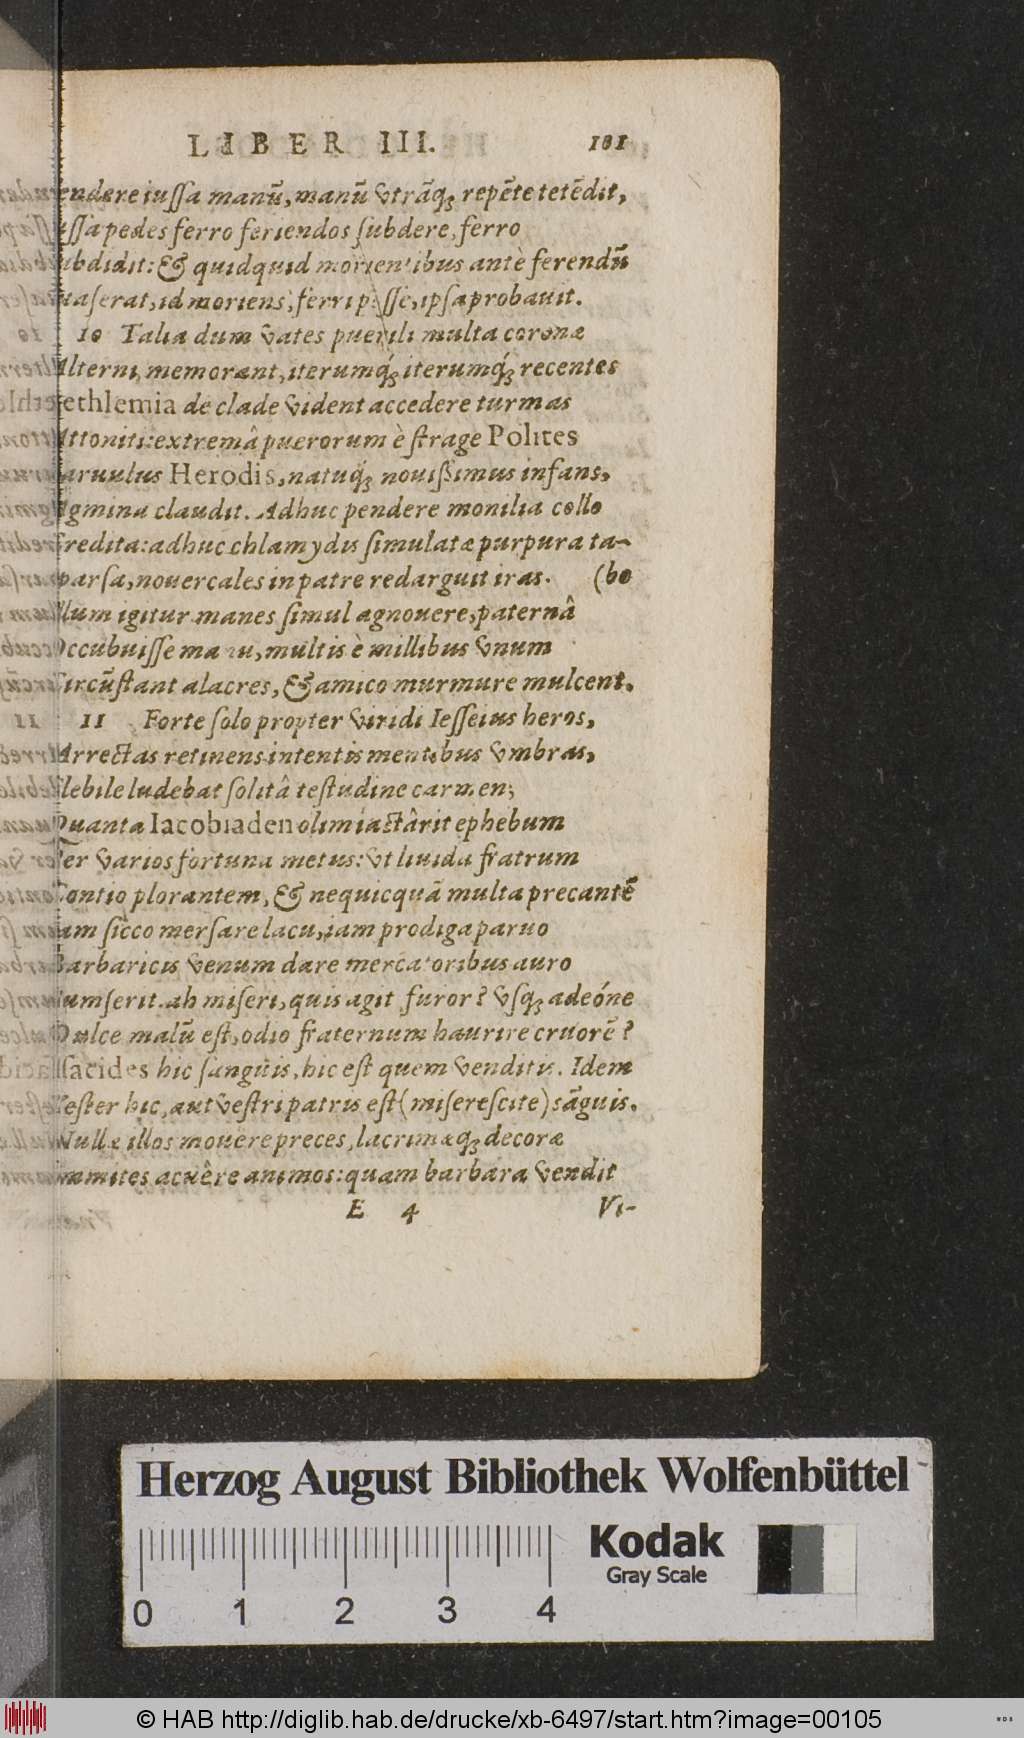 LIBER III. 101
endere iussa manū, manū vtrāq; repēte tetēdit,
ssa pedes ferro feriendos subdere, ferro
ubdidit: & quidquid morientibus antè ferendū
uaserat, id moriens, ferri posse, ipsa probauit.
10 10 Talia dum vates puerili multa coronæ
Alterni, memorant, iterumq́; iterumq́; recentes
ethlemia de clade vident accedere turmas
Attoniti: extremâ puerorum è strage Polites
aruulus Herodis, natuq́; nouißimus infans,
Agmina claudit. Adhuc pendere monilia collo
redita: adhuc chlamydis simulatæ purpura ta-
parsa, nouercales in patre redarguit iras. (bo
llum igitur manes simul agnouere, paternâ
Occubuisse manu, multis è millibus vnum
Circūstant alacres, & amico murmure mulcent.
11 11 Forte solo propter viridi Iesseius heros,
Arrectas retinens intentis mentibus vmbras,
Flebile ludebat solitâ testudine carmen;
Quanta Iacobiaden olim iactârit ephebum
Per varios fortuna metus: vt liuida fratrum
Contio plorantem, & nequicquā multa precantē
iam sicco mersare lacu, iam prodiga paruo
Barbaricis venum dare mercatoribus auro
umserit. ah miseri, quis agit furor? vsq; adeóne
Dulce malū est, odio fraternum haurire cruorē?
sacides hic sanguis, hic est quem venditis. Idem
Vester hic, aut vestri patris est (miserescite) sāguis.
Nullæ illos mouere preces, lacrimæq; decoræ
immites acuêre animos: quam barbara vendit
E 4 Vi-
Herzog August Bibliothek Wolfenbüttel
Kodak
Gray Scale
0 1 2 3 4
© HAB http://diglib.hab.de/drucke/xb-6497/start.htm?image=00105